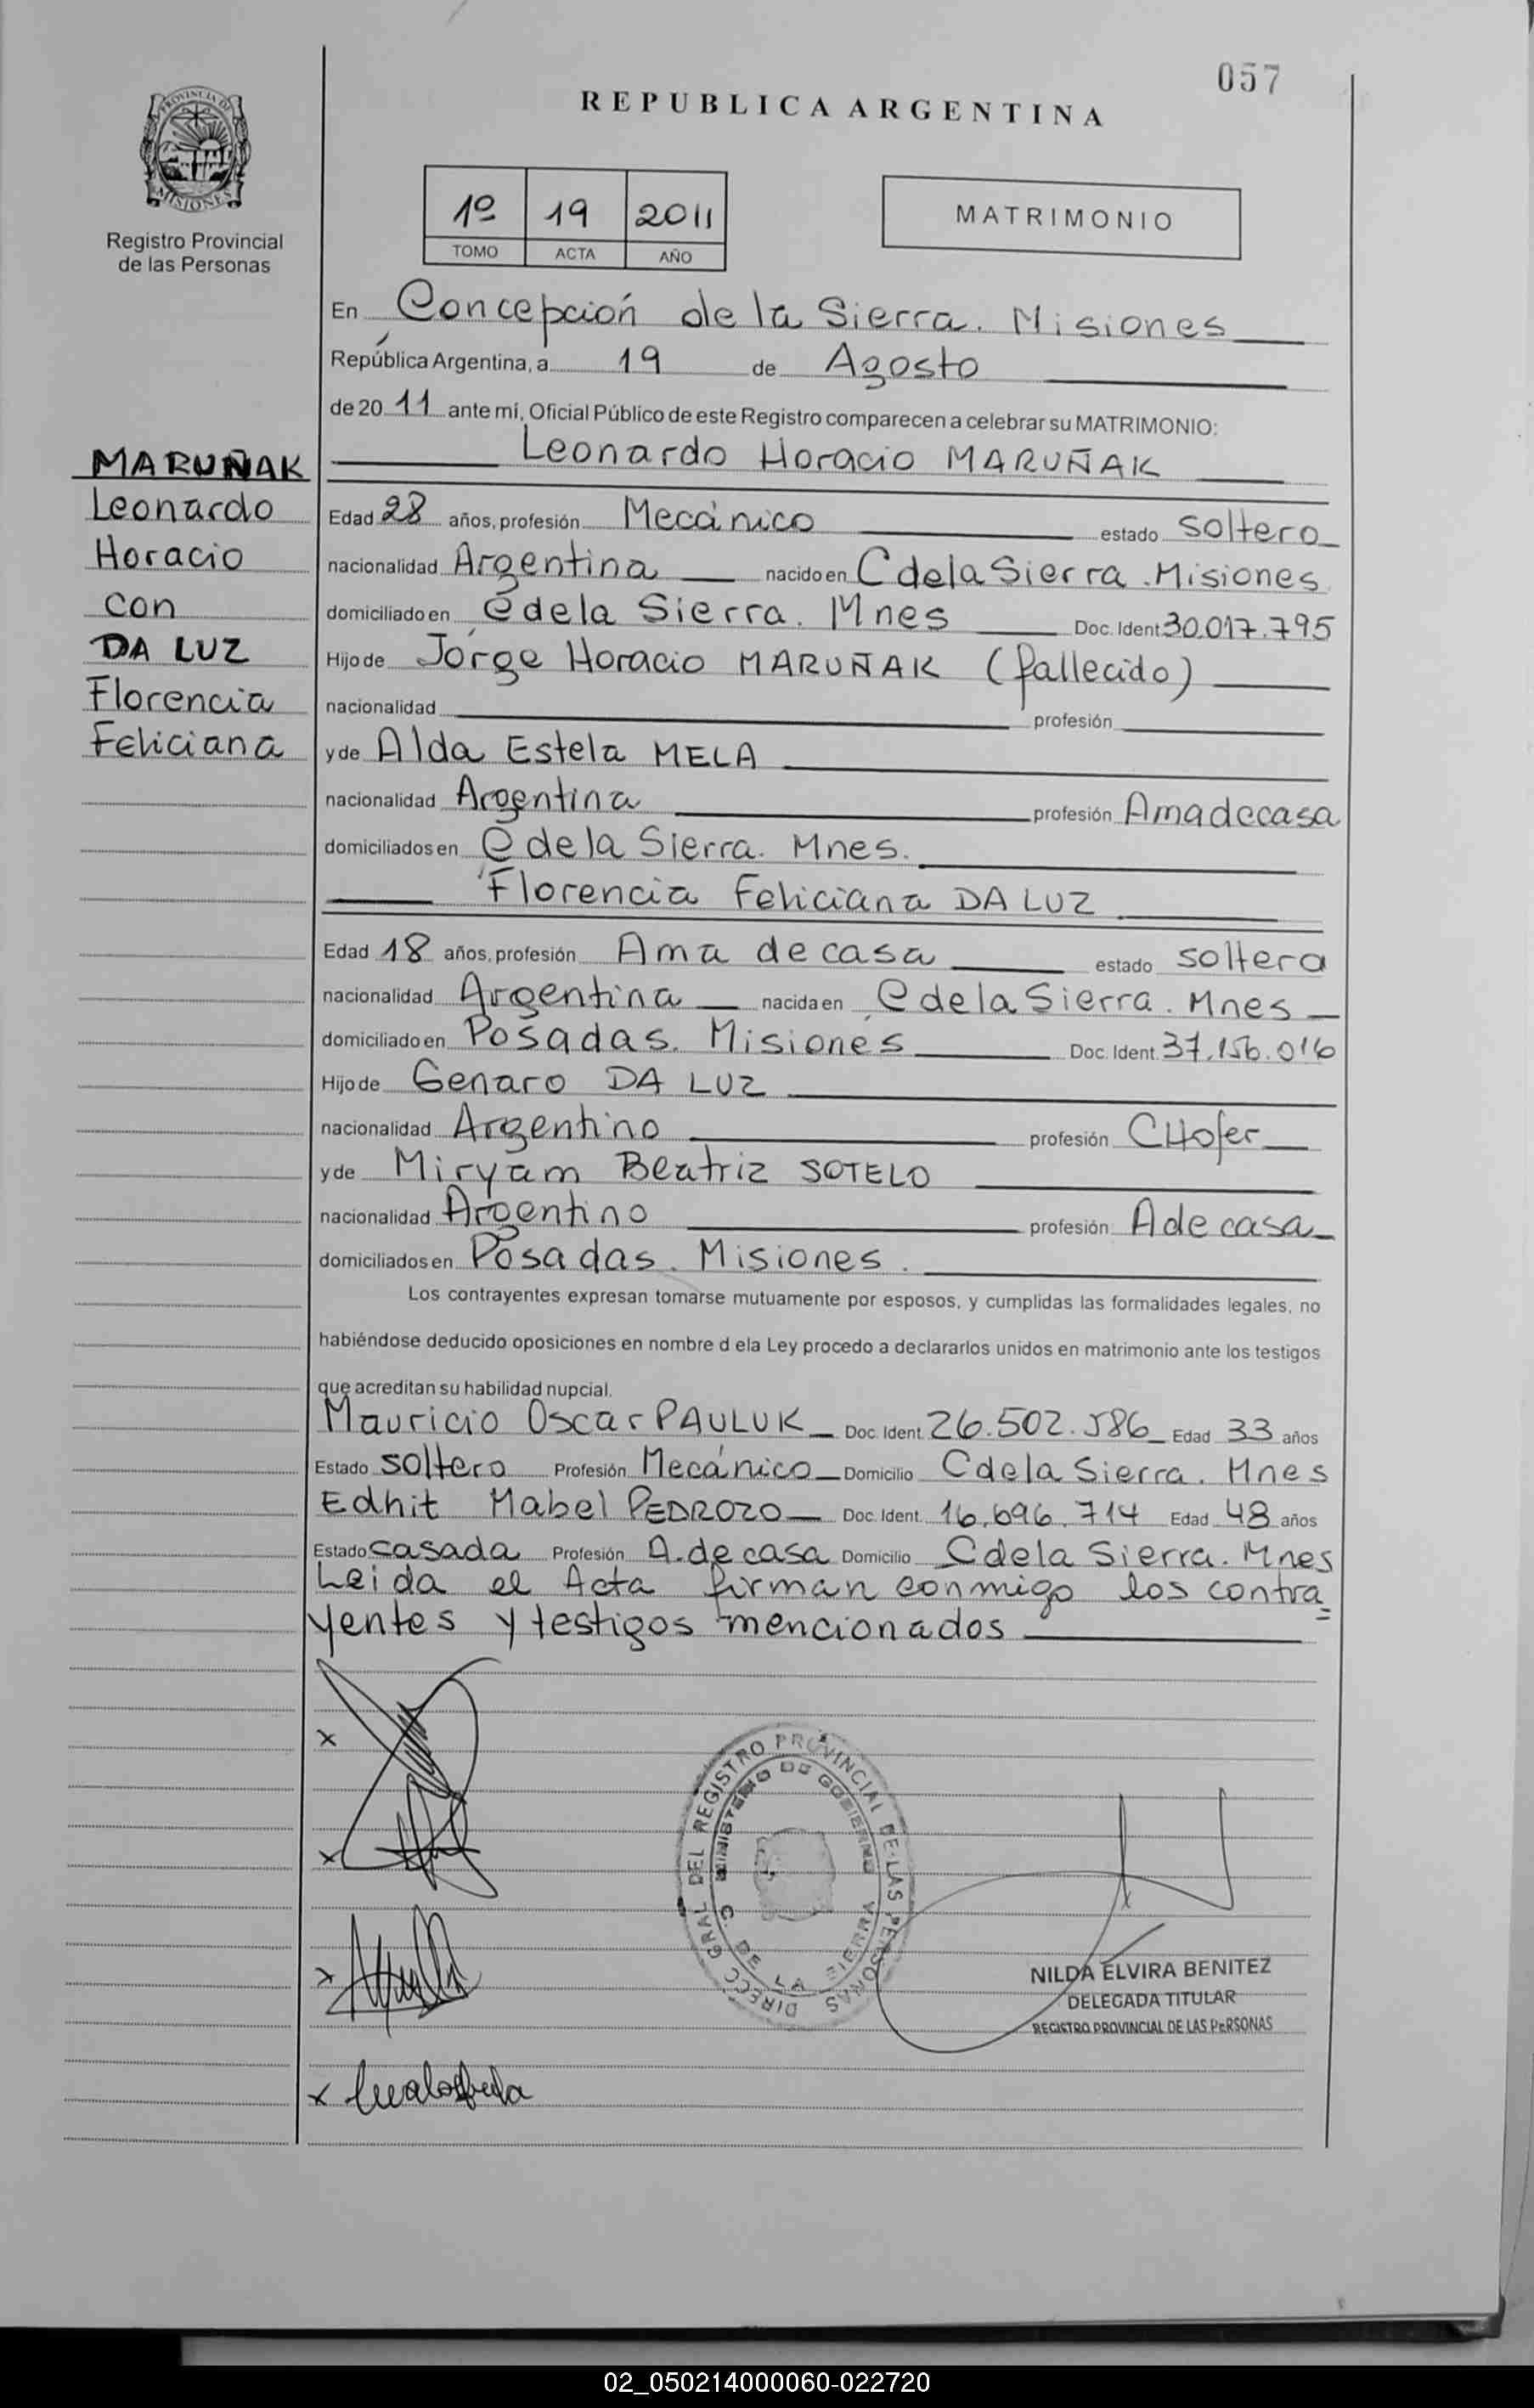 057
REPUBLICA ARGENTINA
PROVINCIA DE MISIONES
Registro Provincial
de las Personas
1º 19 2011
TOMO ACTA AÑO
MATRIMONIO
En Concepción de la Sierra. Misiones
República Argentina, a 19 de Agosto
de 20 11 ante mí, Oficial Público de este Registro comparecen a celebrar su MATRIMONIO:
MARUÑAK
Leonardo
Horacio
con
DA LUZ
Florencia
Feliciana
Leonardo Horacio MARUÑAK
Edad 28 años, profesión Mecánico estado soltero
nacionalidad Argentina nacido en C de la Sierra. Misiones
domiciliado en C de la Sierra. Mnes Doc. Ident. 30.017.795
Hijo de Jorge Horacio MARUÑAK (fallecido)
nacionalidad profesión
y de Alda Estela MELA
nacionalidad Argentina profesión Ama de casa
domiciliados en C de la Sierra. Mnes.
Florencia Feliciana DA LUZ
Edad 18 años, profesión Ama de casa estado soltera
nacionalidad Argentina nacida en C de la Sierra. Mnes
domiciliado en Posadas. Misiones Doc. Ident. 37.156.016
Hijo de Genaro DA LUZ
nacionalidad Argentino profesión CHofer
y de Miryam Beatriz SOTELO
nacionalidad Argentino profesión A de casa
domiciliados en Posadas. Misiones.
Los contrayentes expresan tomarse mutuamente por esposos, y cumplidas las formalidades legales, no
habiéndose deducido oposiciones en nombre d ela Ley procedo a declararlos unidos en matrimonio ante los testigos
que acreditan su habilidad nupcial.
Mauricio Oscar PAULUK Doc. Ident. 26.502.586 Edad 33 años
Estado soltero Profesión Mecánico Domicilio C de la Sierra. Mnes
Edhit Mabel PEDROZO Doc. Ident. 16.696.714 Edad 48 años
Estado casada Profesión A. de casa Domicilio C de la Sierra. Mnes
Leida el Acta firman conmigo los contra=
yentes y testigos mencionados
DIRECC GRAL DEL REGISTRO PROVINCIAL DE LAS PERSONAS
MINISTERIO DE GOBIERNO
C. DE LA SIERRA
NILDA ELVIRA BENITEZ
DELEGADA TITULAR
REGISTRO PROVINCIAL DE LAS PERSONAS
02_050214000060-022720